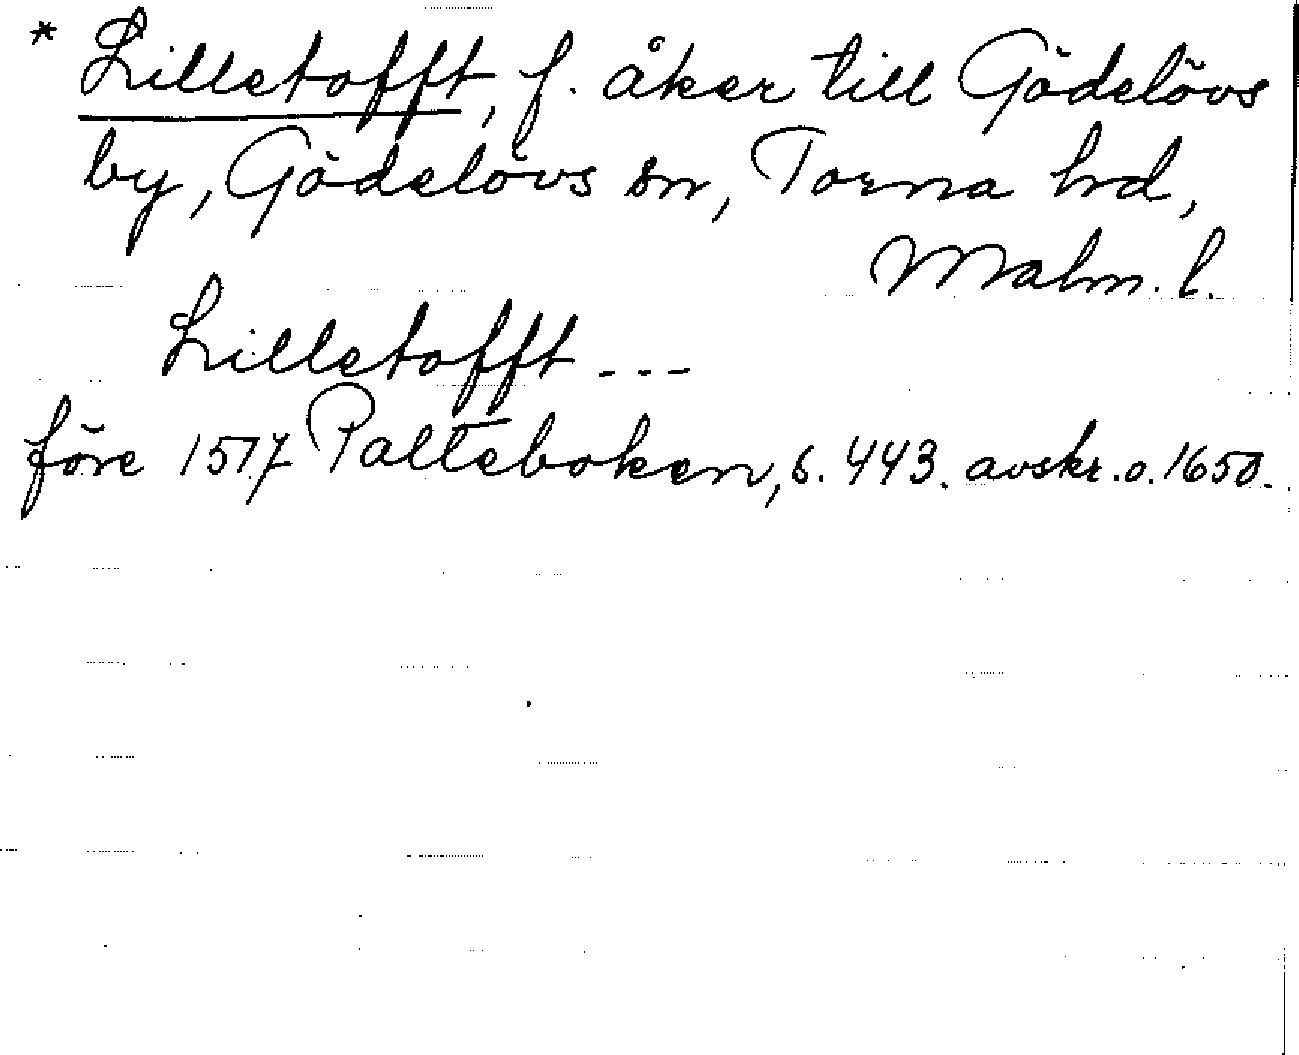 * Lilletofft, f. åker till Gödelövs
by, Gödelövs sn, Torna hd,
Malm. l.
Lilletofft ---
före 1517 Palteboken, s. 443. avskr. o. 1650.